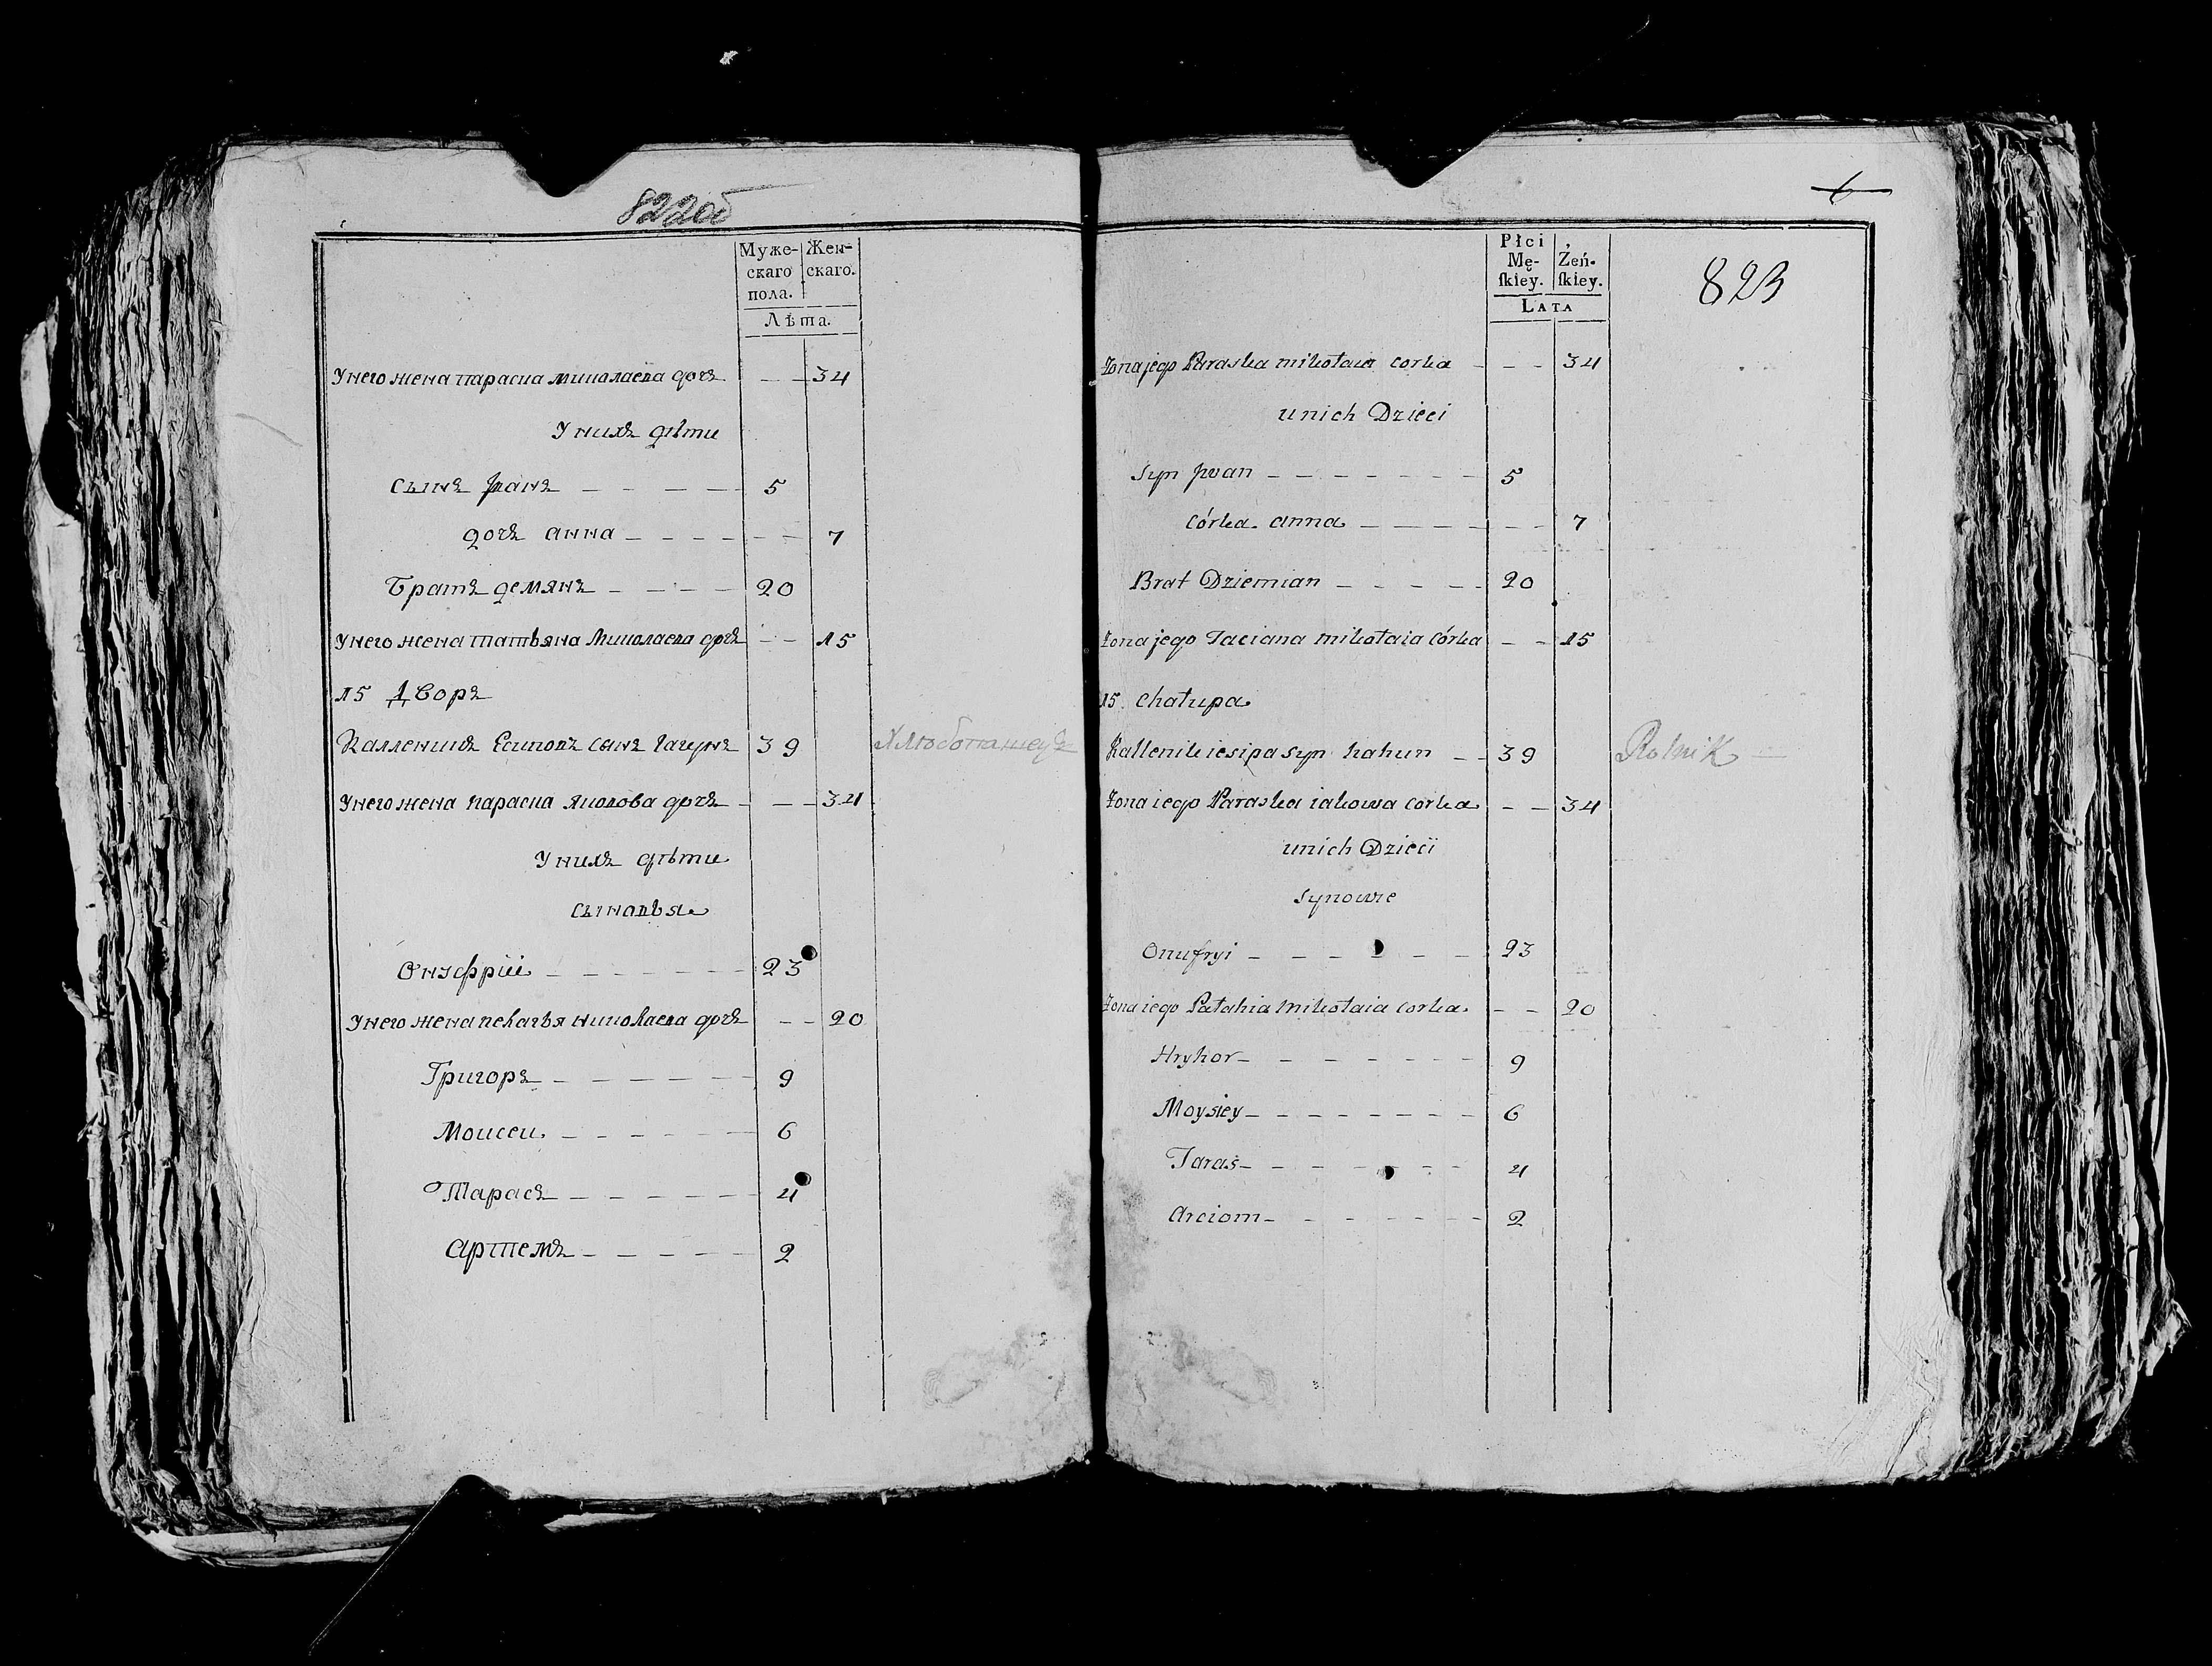 822 об
Муже-
скаго
пола.
Жен-
скаго.
Лѣта.
У него жена параска миколаева дочь - - 34
У нихъ дѣти
сынъ иванъ - - - - 5
дочъ анна - - - - - - 7
Братъ демянъ - - - - 20
У него жена татьяна миколаева дочъ - - 15
15 Дворъ
Калленикъ Есиповъ сынъ гагунъ 39 Хлѣбопашецъ
У него жена параска яковова дочъ - - - 34
У нихъ дѣти
сыновья
Онуфрій - - - - - - 23
У него жена пелагья николаева дочъ - - 20
Григоръ - - - - - - 9
Моисеи - - - - - 6
Тарасъ - - - - - - 4
Артемъ - - - - - 2
6
823
Płci
Mę-
ſkiey.
Żeń-
ſkiey.
LATA
Żona jego Paraska mikołaia corka - - - 34
unich Dzieci
syn jwan - - - - - - - 5
córka anna - - - - - - 7
Brat Dziemian - - - - - 20
żona jego Taciana mikołaia córka - - 15
15. chałupa
Kallenik iesipa syn hahun - - 39 Rolnik
żona iego Paraska iakowa corka - - 34
unich Dzieci
synowie
Onufryi - - - - - - 23
żona iego Pałahia mikołaia corka - - 20
Hryhor - - - - - - 9
Moysiey - - - - - - - 6
Taras - - - - - - 4
Arciom - - - - - - 2